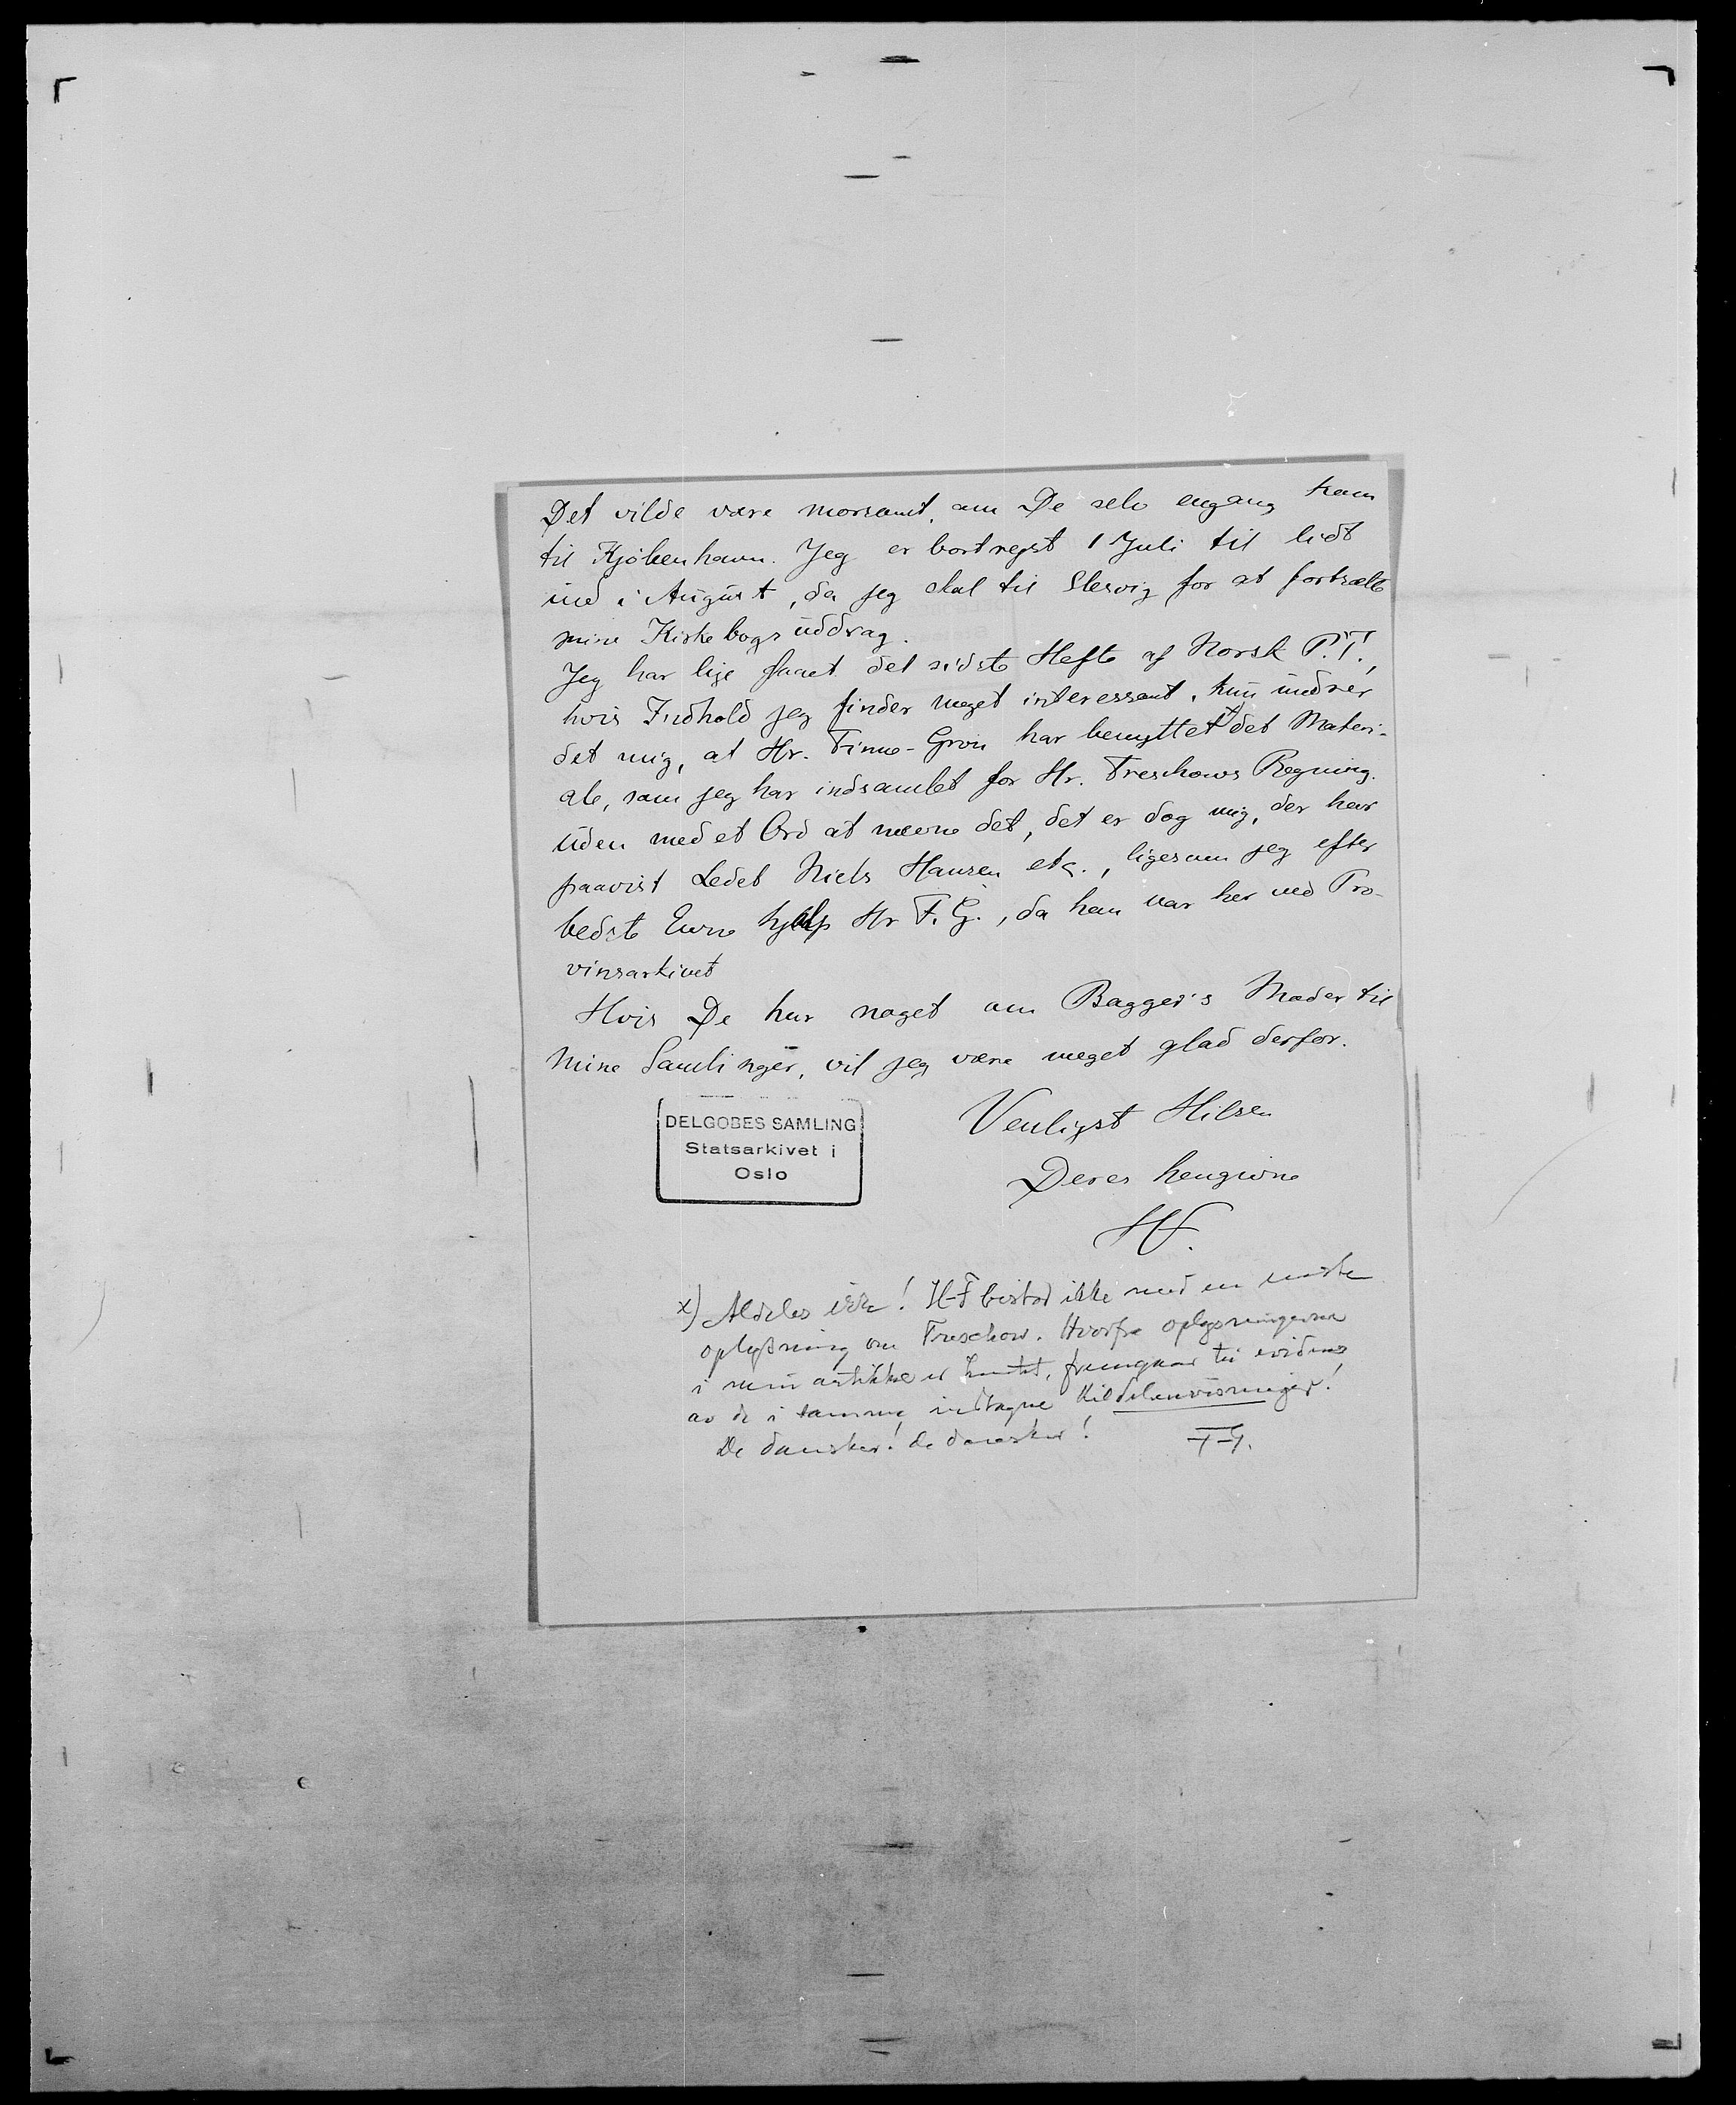 Det vilde være morsomt, om De selv engang kom
til Kjøbenhavn. Jeg er bortrejst 1 Juli til lidt
ind i August, da jeg skal til Slesvig for at fortsætte
mine Kirkebogsuddrag.
Jeg har lige faaet det sidste Hefte af Norsk P.T.,
hvis Indhold jeg finder meget interessant, kun undrer
det mig, at Hr. Finne-Grøn har benyttet x) det Materi-
ale, som jeg har indsamlet for Hr. Treschows Regning.
uden med et Ord at nævne det, det er dog mig, der har
paavist Ledet Niels Hansen etc., ligesom jeg efter
bedste Evne hjalp Hr F. G., da han var her ved Pro-
vinsarkivet
Hvis De har noget om Bagger's Moder til
mine Samlinger, vil jeg være meget glad derfor.
DELGOBES SAMLING
Statsarkivet i
Oslo
Venligst Hilsen
Deres hengivne
HF.
x) Aldeles ikke! H-F bistod ikke med en eneste
oplysning om Treschow. Hvorfra oplysningerne
i min artikkel er hentet, fremgaar til evidens
av de i samme indtagne Kildehenvisninger!
De dansker! de dansker! F-G.